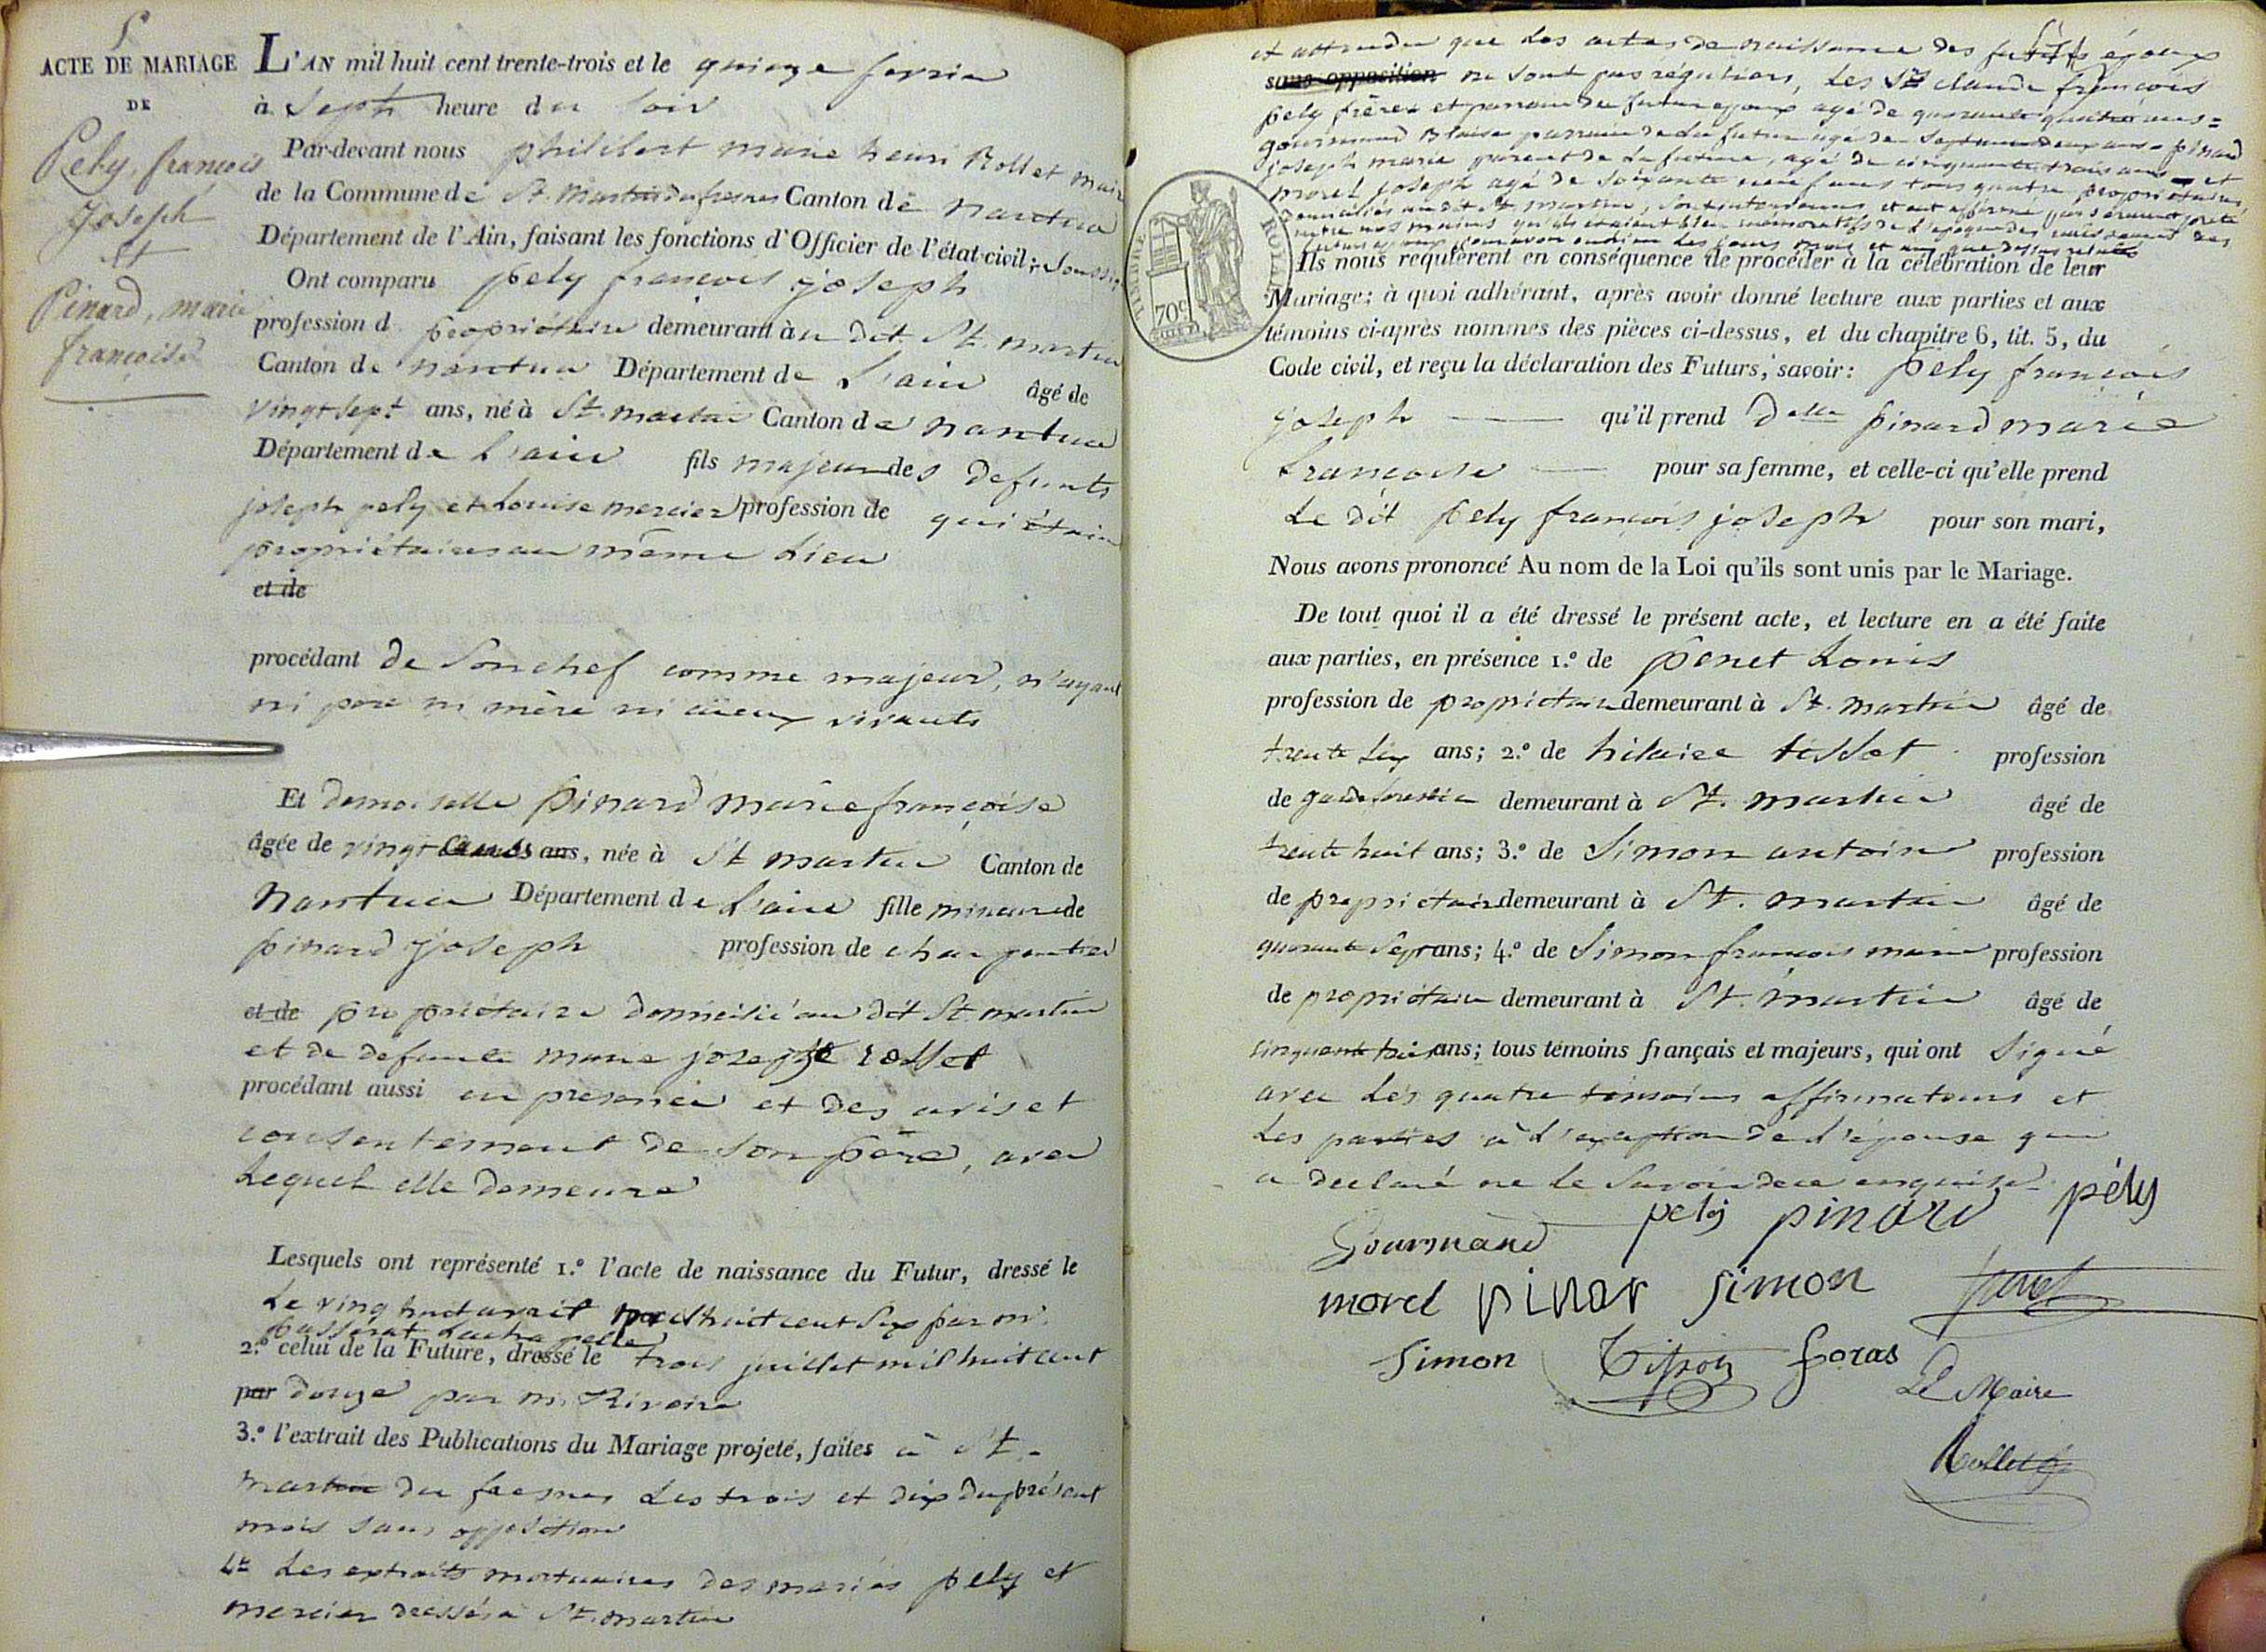 5
ACTE DE MARIAGE
DE
Pely, françois
Joseph
et
Pinard, marie
françoise
L'AN mil huit cent trente-trois et le quinze fevrier
à Sept heure du soir
Par-devant nous philibert marie henri Rollet maire
de la Commune de St. Martin du fresnes Canton de nantua
Département de l'Ain, faisant les fonctions d'Officier de l'état-civil; Soussi
Ont comparu pely françois joseph
profession d propriétaire demeurant au dit St. martin
Canton de nantua Département de L'ain âgé de
vingt sept ans, né à St. martin Canton de nantua
Département de L'ain fils majeur des defunts
joseph pely et Louise mercier profession de qui étaient
propriétaires au même Lieu
et de
procédant de Son chef comme majeur, n'ayant
ni pere ni mère ni aïeux vivants
Et demoiselle pinard marie françoise
âgée de vingt ans, née à St martin Canton de
Nantua Département de L'ain fille mineure de
pinard joseph profession de charpentier
et de propriétaire domicilié au dit St. martin
et de defunte marie josephte rollet
procédant aussi en presence et des avis et
consentement de son père, avec
Lequel elle demeure
Lesquels ont représenté 1.° l'acte de naissance du Futur, dressé le
Le vingt huit avril mil huit cent six par mr.
passerat Lachapelle
2.° celui de la Future, dressé le trois juillet mil huit cent
par douze par mr. Rivoire
3.° l'extrait des Publications du Mariage projeté, faites à St.
martin du fresnes Les trois et dix du présent
mois sans opposition
4° Les extraits mortuaires des mariés pely et
mercier dressés à St. martin
et attendu que Les actes de naissance des futurs époux
sans opposition ne sont pas réguliers, Les Srs claude françois
pely frère et parrain du futur epoux agé de quarante quatre ans =
gourmand Blaise parrain de La future agé de Septante deux ans = pinard
joseph marie parent de La future, agé de cinquante trois ans = et
morel joseph agé de Soixante neuf ans tous quatre propriétaires
domiciliés au dit St martin, sont intervenus et ont affirmé par serment prêté
entre nos mains qu'ils étaient bien mémoratifs de l'époque des naissances des
futurs epoux Les jours mois et ans que dessus relatés
Ils nous requièrent en conséquence de procéder à la célébration de leur
Mariage; à quoi adhérant, après avoir donné lecture aux parties et aux
témoins ci-après nommés des pièces ci-dessus, et du chapitre 6, tit. 5, du
Code civil, et reçu la déclaration des Futurs, savoir: pely françois
joseph qu'il prend Delle pinard marie
françoise pour sa femme, et celle-ci qu'elle prend
Le dit pely françois joseph pour son mari,
Nous avons prononcé Au nom de la Loi qu'ils sont unis par le Mariage.
De tout quoi il a été dressé le présent acte, et lecture en a été faite
aux parties, en présence 1.° de penet Louis
profession de propriétaire demeurant à St. martin âgé de
trente six ans; 2.° de hilaire tissot profession
de garde forestier demeurant à St. martin âgé de
trente huit ans; 3.° de Simon antoine profession
de propriétaire demeurant à St. martin âgé de
quarante Sept ans; 4.° de Simon françois marie profession
de propriétaire demeurant à St. martin âgé de
cinquante trois ans; tous témoins français et majeurs, qui ont Signé
avec Les quatre témoins affirmateurs et
Les parties à L'exception de L'épouse qui
a declaré ne le Savoir de ce enquise
Gourmand pely pinard pély
morel pinar simon
simon Tissot
Le Maire
Rollet
TIMBRE ROYAL
70c